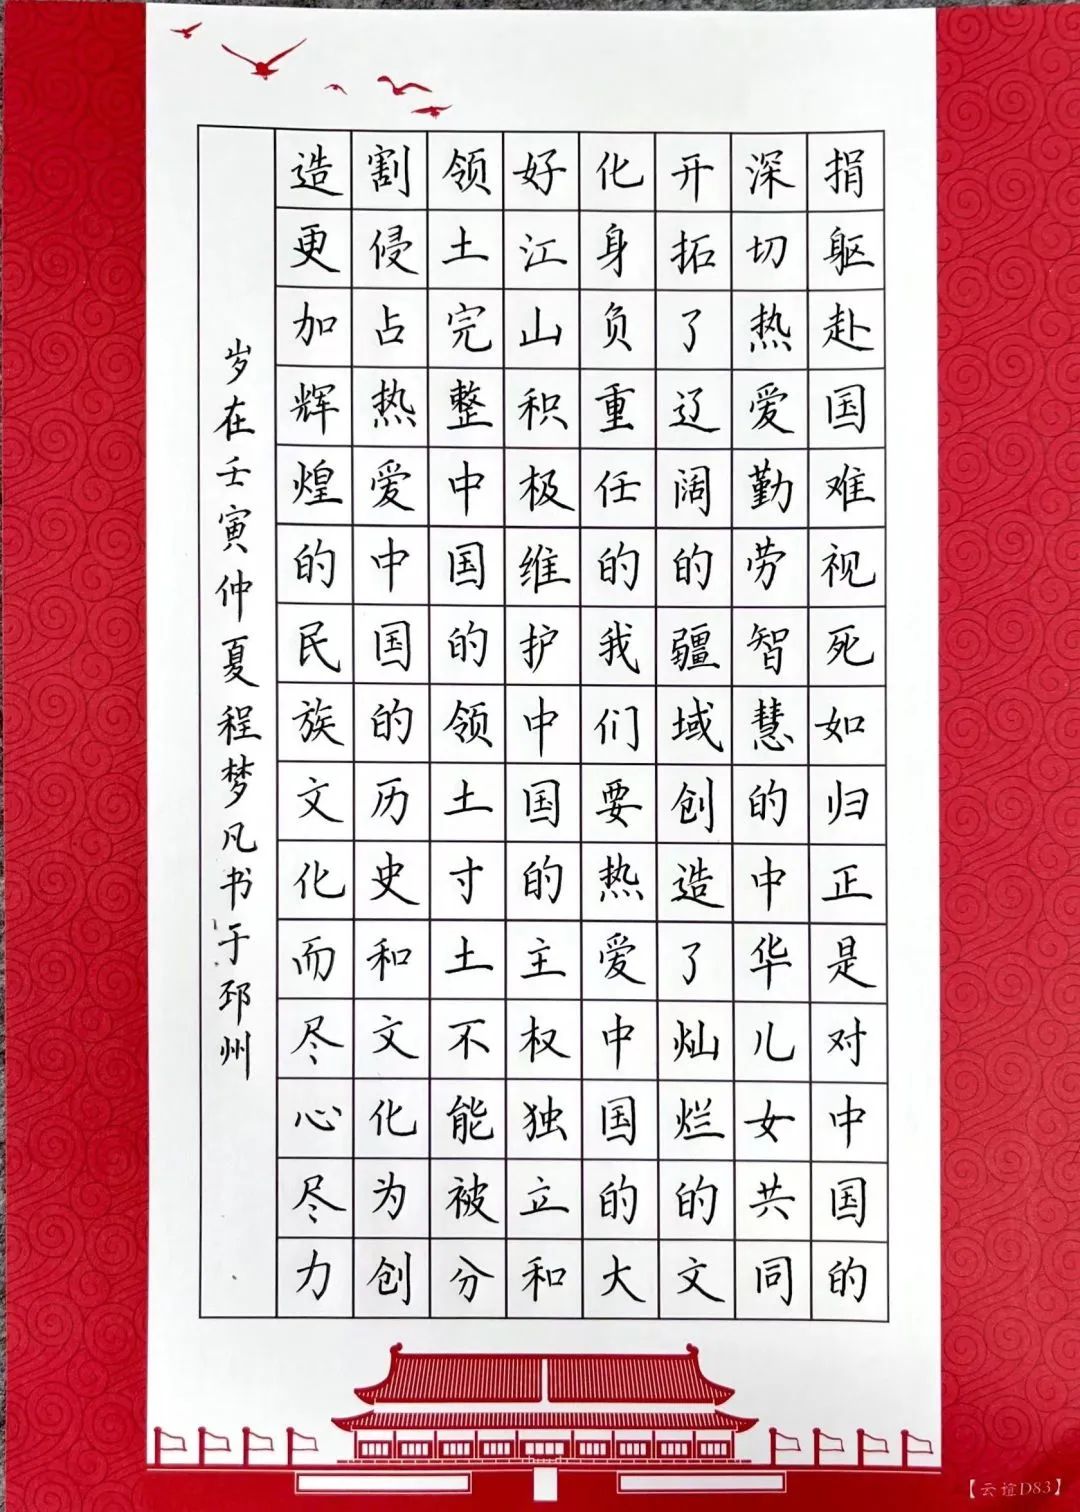 捐躯赴国难视死如归正是对中国的
深切热爱勤劳智慧的中华儿女共同
开拓了辽阔的疆域创造了灿烂的文
化身负重任的我们要热爱中国的大
好江山积极维护中国的主权独立和
领土完整中国的领土寸土不能被分
割侵占热爱中国的历史和文化为创
造更加辉煌的民族文化而尽心尽力
岁在壬寅仲夏程梦凡书于邳州
【云谊D83】